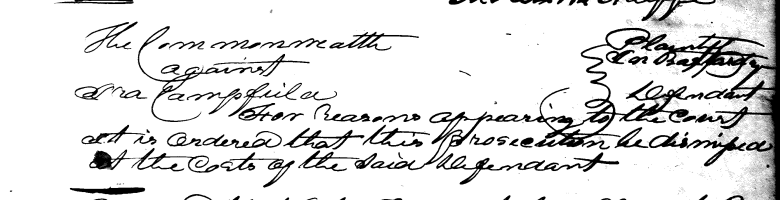 The Commonwealth Plaintiff
against On Bastardy
Ira Campfield Defendant
For reasons appearing to the Court
it is ordered that this Prosecution be dismissed
at the Costs of the said Defendant